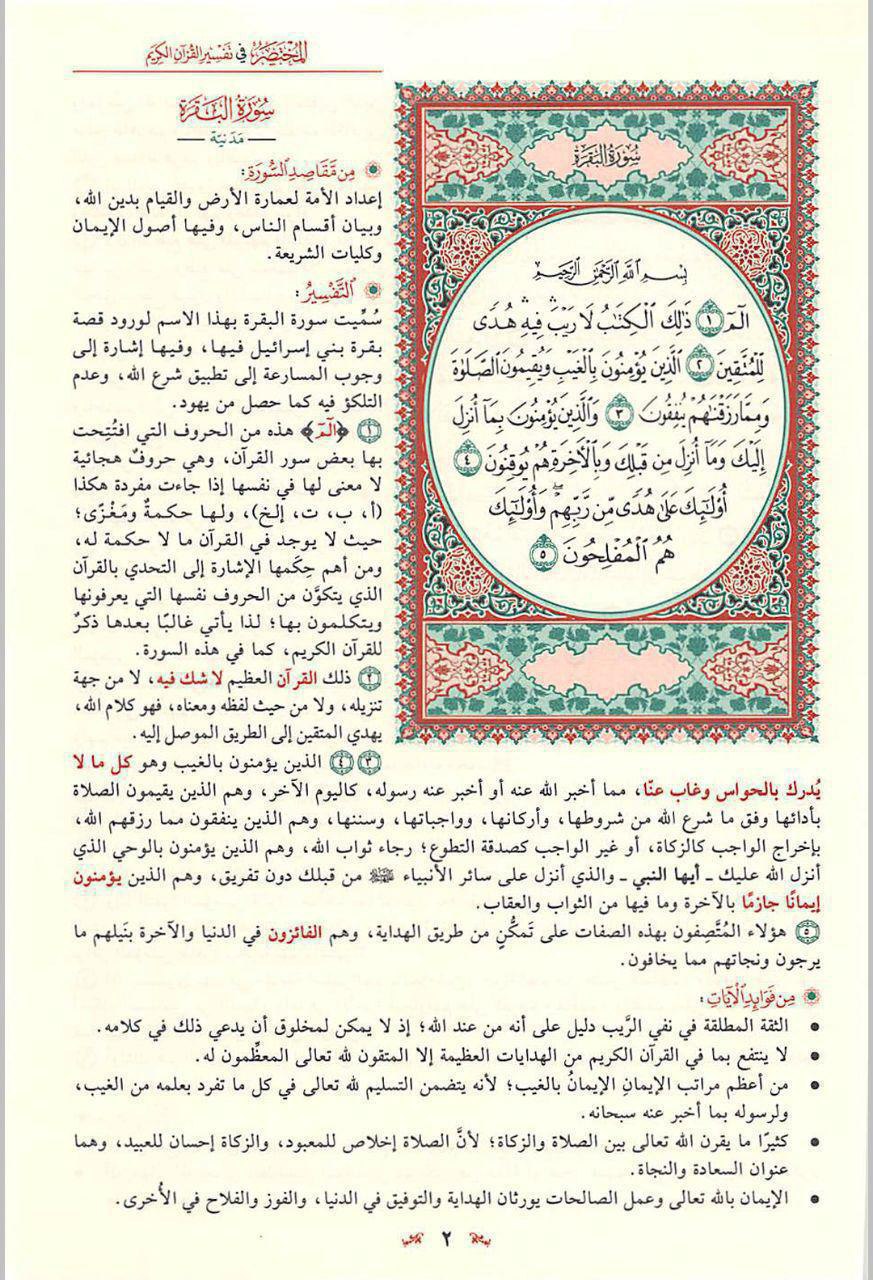 المختصر في تفسير القرآن الكريم
سورة البقرة
بسم الله الرحمن الرحيم
الٓمٓ ١ ذَٰلِكَ ٱلْكِتَٰبُ لَا رَيْبَۛ فِيهِۛ هُدًى
لِّلْمُتَّقِينَ ٢ ٱلَّذِينَ يُؤْمِنُونَ بِٱلْغَيْبِ وَيُقِيمُونَ ٱلصَّلَوٰةَ
وَمِمَّا رَزَقْنَٰهُمْ يُنفِقُونَ ٣ وَٱلَّذِينَ يُؤْمِنُونَ بِمَآ أُنزِلَ
إِلَيْكَ وَمَآ أُنزِلَ مِن قَبْلِكَ وَبِٱلْأَخِرَةِ هُمْ يُوقِنُونَ ٤
أُوْلَٰٓئِكَ عَلَىٰ هُدًى مِّن رَّبِّهِمْۖ وَأُوْلَٰٓئِكَ
هُمُ ٱلْمُفْلِحُونَ ٥
سورة البقرة
مدنية
من مقاصد السورة:
إعداد الأمة لعمارة الأرض والقيام بدين الله،
وبيان أقسام الناس، وفيها أصول الإيمان
وكليات الشريعة.
التفسير:
سُمِّيت سورة البقرة بهذا الاسم لورود قصة
بقرة بني إسرائيل فيها، وفيها إشارة إلى
وجوب المسارعة إلى تطبيق شرع الله، وعدم
التلكؤ فيه كما حصل من يهود.
١ ﴿الٓمٓ﴾ هذه من الحروف التي افتُتِحت
بها بعض سور القرآن، وهي حروفٌ هجائية
لا معنى لها في نفسها إذا جاءت مفردة هكذا
(أ، ب، ت، إلخ)، ولها حكمةٌ ومَغْزًى؛
حيث لا يوجد في القرآن ما لا حكمة له،
ومن أهم حِكَمها الإشارة إلى التحدي بالقرآن
الذي يتكوَّن من الحروف نفسها التي يعرفونها
ويتكلمون بها؛ لذا يأتي غالبًا بعدها ذكرٌ
للقرآن الكريم، كما في هذه السورة.
٢ ذلك القرآن العظيم لا شك فيه، لا من جهة
تنزيله، ولا من حيث لفظه ومعناه، فهو كلام الله،
يهدي المتقين إلى الطريق الموصل إليه.
٣ ٤ الذين يؤمنون بالغيب وهو كل ما لا
يُدرك بالحواس وغاب عنّا، مما أخبر الله عنه أو أخبر عنه رسوله، كاليوم الآخر، وهم الذين يقيمون الصلاة
بأدائها وفق ما شرع الله من شروطها، وأركانها، وواجباتها، وسننها، وهم الذين ينفقون مما رزقهم الله،
بإخراج الواجب كالزكاة، أو غير الواجب كصدقة التطوع؛ رجاء ثواب الله، وهم الذين يؤمنون بالوحي الذي
أنزل الله عليك ـ أيها النبي ـ والذي أنزل على سائر الأنبياء ﷺ من قبلك دون تفريق، وهم الذين يؤمنون
إيمانًا جازمًا بالآخرة وما فيها من الثواب والعقاب.
٥ هؤلاء المُتَّصِفون بهذه الصفات على تَمكُّنٍ من طريق الهداية، وهم الفائزون في الدنيا والآخرة بنَيلهم ما
يرجون ونجاتهم مما يخافون.
من فوائد الآيات:
• الثقة المطلقة في نفي الرَّيب دليل على أنه من عند الله؛ إذ لا يمكن لمخلوق أن يدعي ذلك في كلامه.
• لا ينتفع بما في القرآن الكريم من الهدايات العظيمة إلا المتقون لله تعالى المعظِّمون له.
• من أعظم مراتب الإيمانِ الإيمانُ بالغيب؛ لأنه يتضمن التسليم لله تعالى في كل ما تفرد بعلمه من الغيب،
ولرسوله بما أخبر عنه سبحانه.
• كثيرًا ما يقرن الله تعالى بين الصلاة والزكاة؛ لأنَّ الصلاة إخلاص للمعبود، والزكاة إحسان للعبيد، وهما
عنوان السعادة والنجاة.
• الإيمان بالله تعالى وعمل الصالحات يورثان الهداية والتوفيق في الدنيا، والفوز والفلاح في الأُخرى.
٢